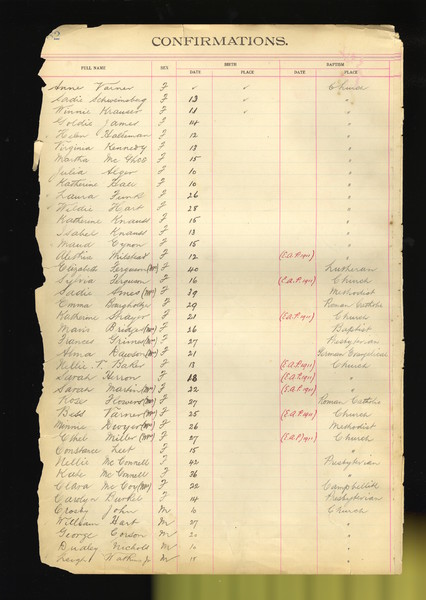 2
CONFIRMATIONS.
FULL NAME SEX BIRTH BAPTISM
DATE PLACE DATE PLACE
Anna Varner F ✓ ✓ Church
Sadie Schweinsberg F 13 ✓ "
Winnie Krauser F 11 ✓ "
Goldie James F 14 "
Helen Halleman F 12 "
Virginia Kennedy F 13 "
Martha F 15 "
Julia Alger F 10 "
Katherine Hall F 10 "
Laura Funk F 26 "
Wildie Hart F 28 "
Katherine Knauss F 15 "
Isabel Knauss F 13 "
Maud Cynon F 15 "
Milstead F 12 (E.A.P. 1911) "
Elizabeth Ferguson (Mrs) F 40 Lutheran
Sylvia Ferguson F 16 (E.A.P. 1911) Church
Sadie Jones (Mrs) F 39 Methodist
Emma F 29 Roman Catholic
Katherine Shayor F 21 (E.A.P. 1911) Church
Maris Bridge (Mrs) F 26 Baptist
Frances Greines (Mrs) F 27 Presbyterian
Anna Dawson (Mrs) F 21 German Evangelical
Nellie T. Baker F 13 (E.A.P. 1911) Church
Sarah Herron F 18 (E.A.P. 1911) "
Sarah Martin (Mrs) F 22 (E.A.P. 1911) "
Rose Flowers (Mrs) F 27 Roman Catholic
Bess Varner (Mrs) F 25 (E.A.P. 1911) Church
Minnie Dwyer (Mrs) F 26 Methodist
Ethel Miller (Mrs) F 27 (E.A.P.) 1911 Church
Constance Leet F 15 "
Nellie Mc Connell F 42 Presbyterian
Kate Mc Connell F 26 "
Clara Mc Coy (Mrs) F 22 Campbellite
Carolyn Burket F 14 Presbyterian
Crosby John M Church
William Hart M 27 "
George Corson M "
Dudley Nichols M "
Watkins Jr M "